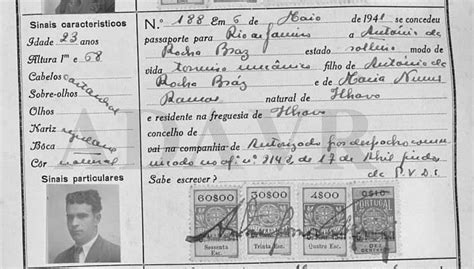 Sinais característicos
Idade 23 anos
Altura 1m e 68
Cabelos castanhos
Sobre-olhos
Olhos
Nariz regular
Bôca
Côr natural
Sinais particulares
N.º 188 Em 6 de Maio de 1941 se concedeu
passaporte para Rio de Janeiro a António da
Rocha Braz estado solteiro modo de
vida torneiro mecânico filho de António da
Rocha Bráz e de Maria Nunes
Ramos natural de Ilhavo
e residente na freguesia de Ilhavo
concelho de
vai na companhia de Autorizado por despacho comu
nicado no of. nº 2142 de 17 de Abril findo
da P.V.D.E.
Sabe escrever?
60$00
Sessenta Esc.
30$00
Trinta Esc.
4$00
Quatro Esc.
0$10
PORTUGAL
DEZ